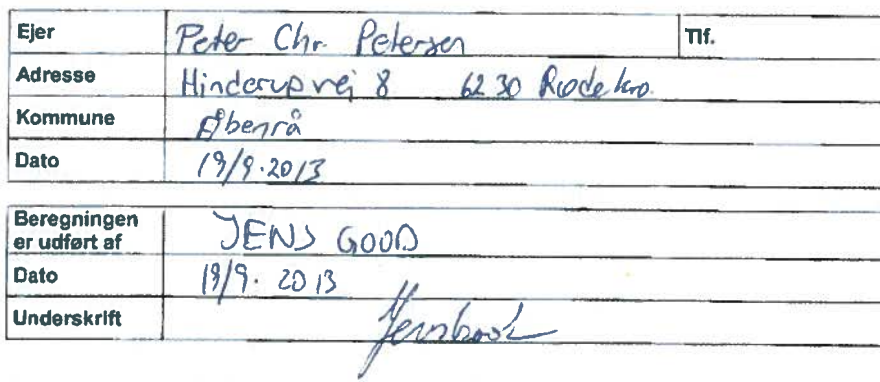 Ejer Peter Chr. Petersen Tlf.
Adresse Hinderupvej 8 6230 Rødekro.
Kommune Åbenrå
Dato 19/9.2013
Beregningen
er udført af JENS GOOD
Dato 19/9. 2013
Underskrift